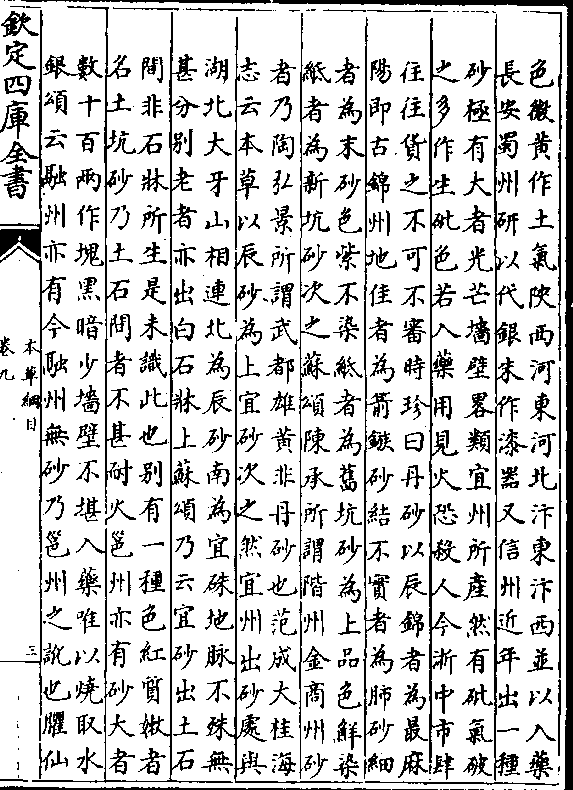 色微黄作土氣陜西河東河北汴東汴西並以入藥
長安蜀州研以代銀朱作漆器又信州近年出一種
砂極有大者光芒墻壁畧類宜州所產然有砒氣破
之多作生砒色若入藥用見火恐殺人今浙中市肆
往往貨之不可不審時珍曰丹砂以辰錦者為最麻
陽即古錦州地佳者為箭鏃砂結不實者為肺砂細
者為末砂色紫不染紙者為舊坑砂為上品色鮮染
紙者為新坑砂次之蘇頌陳承所謂階州金商州砂
者乃陶弘景所謂武都雄黃非丹砂也范成大桂海
志云本草以辰砂為上宜砂次之然宜州出砂處與
湖北大牙山相連北為辰砂南為宜硃地脉不殊無
甚分别老者亦出白石牀上蘇頌乃云宜砂出土石
間非石牀所生是未識此也别有一種色紅質嫩者
名土坑砂乃土石間者不甚耐火邕州亦有砂大者
數十百兩作塊黑暗少墻壁不堪入藥唯以燒取水
銀頌云融州亦有今融州無砂乃邕州之訛也臞仙
欽定四庫全書
本草綱目
卷九
三